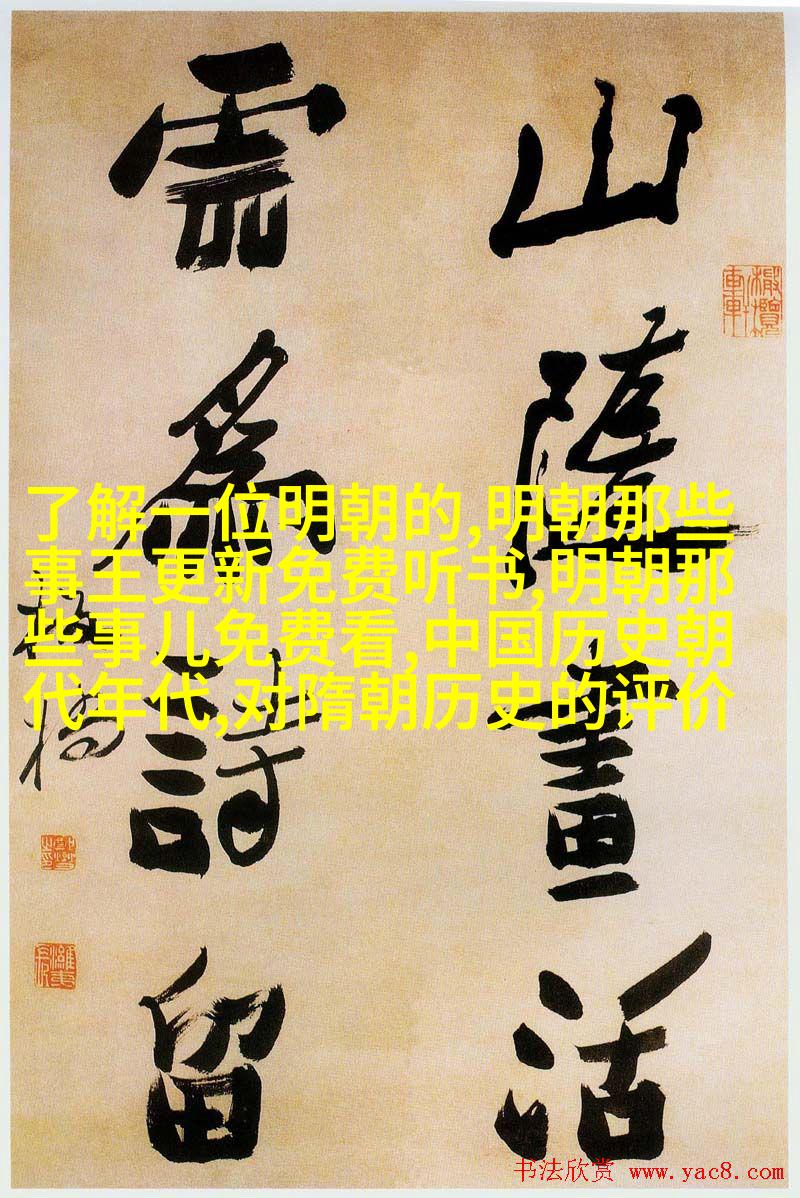 山隨畫活
雲為詩留
板橋
了解一位明朝的,明朝那些
事王更新免费听书,明朝那
些事儿免费看,中国历史朝
代年代,对隋朝历史的评价
书法欣赏 www.yac8.com